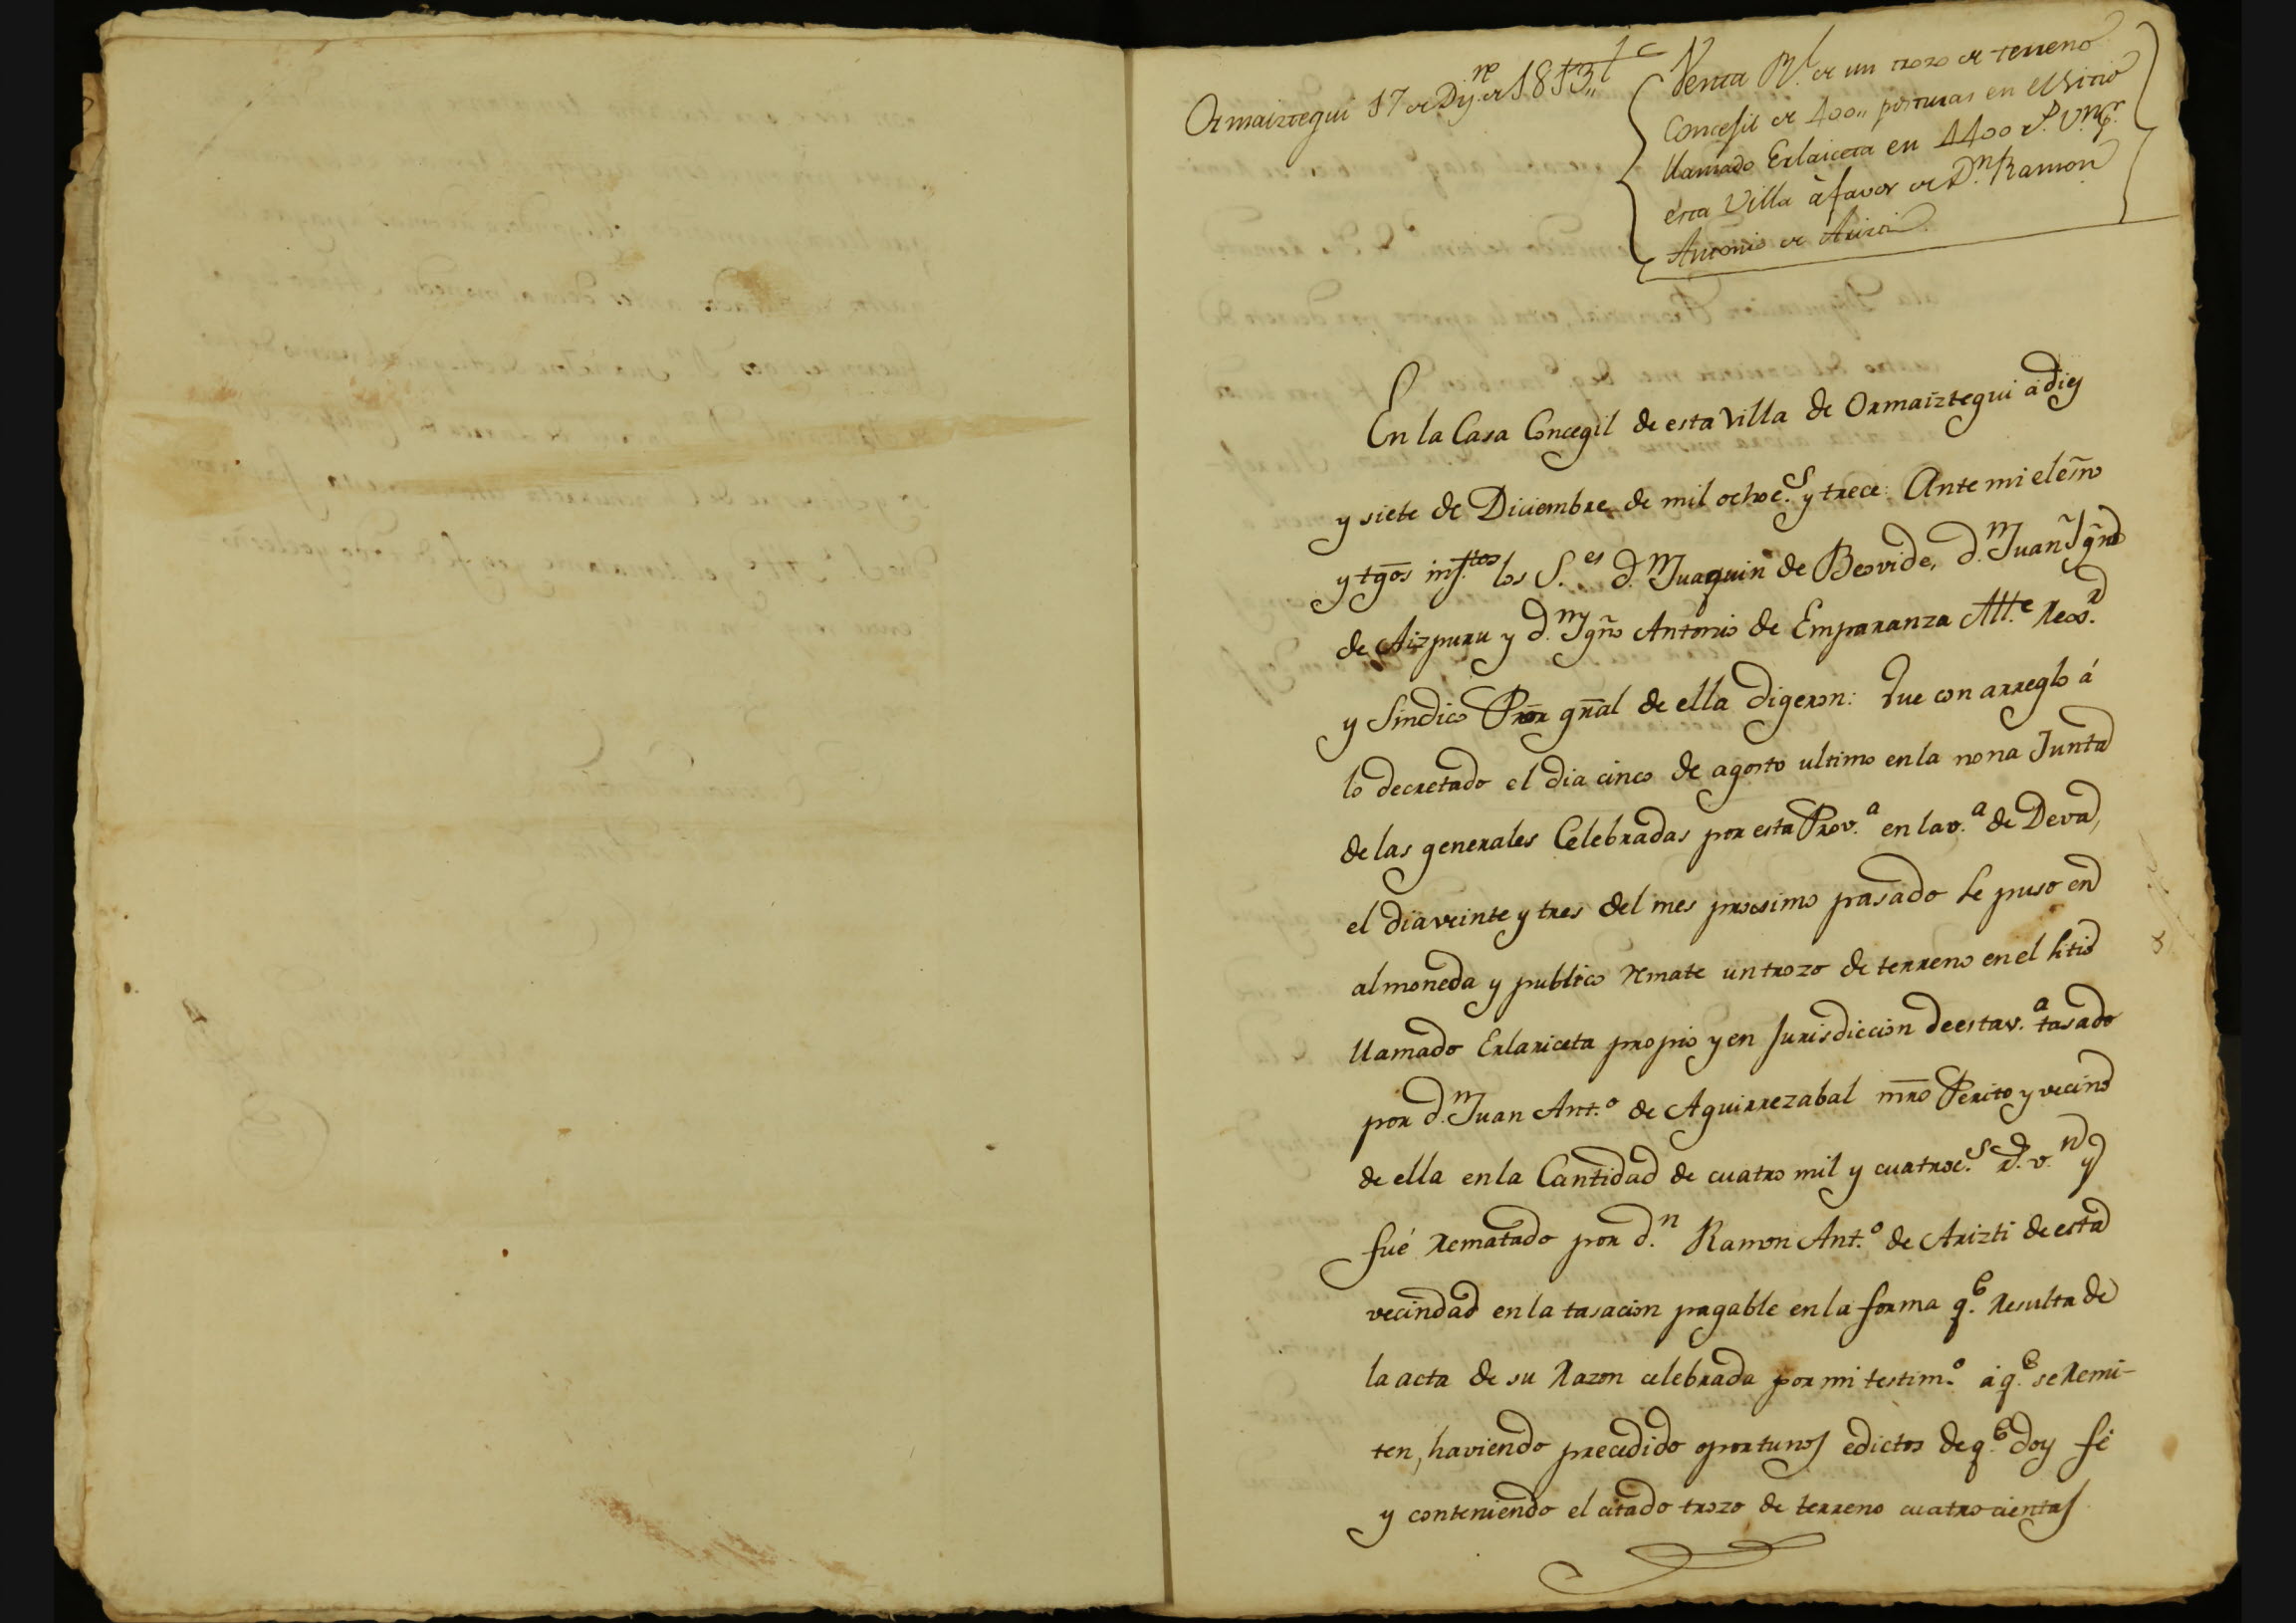 Ormaiztegui 17 de Dij.re de 1813,,
Venta Rl. de un trozo de terreno
Concejil de 400,, posturas en el Sitio
llamado Erlaiceta en 4400 rs. vn. pr.
esta Villa à favor de Dn. Ramon
Antonio de Arizti.
En la Casa Concegil de esta Villa de Ormaiztegui á diez
y siete de Diciembre de mil ochoc.s y trece: Ante mi el esno
y tgos insf.tos los S.es d.n Juaquin de Beovide, d.n Juan Ygno
de Aizpuru y d.n Ygno Antonio de Emparanza All.e Rexr.
y Sindico Pror gnal de ella digeron: Que con arreglo á
lo decretado el dia cinco de agosto ultimo en la nona Junta
de las generales Celebradas por esta Prov.a en la v.a de Deva,
el dia veinte y tres del mes procsimo pasado se puso en
almoneda y publico remate un trozo de terreno en el sitio
llamado Erlariceta propio y en Jurisdiccion de esta v.a tasado
por d.n Juan Ant.o de Aguirrezabal mro Perito y vecino
de ella en la Cantidad de cuatro mil y cuatroc.s rs. v.n y
fué rematado por d.n Ramon Ant.o de Arizti de esta
vecindad en la tasacion pagable en la forma q.e resulta de
la acta de su razon celebrada por mi testim.o á q.e se remi-
ten, haviendo precedido oportunos edictos de q.e doy fé
y conteniendo el citado trozo de terreno cuatrocientas